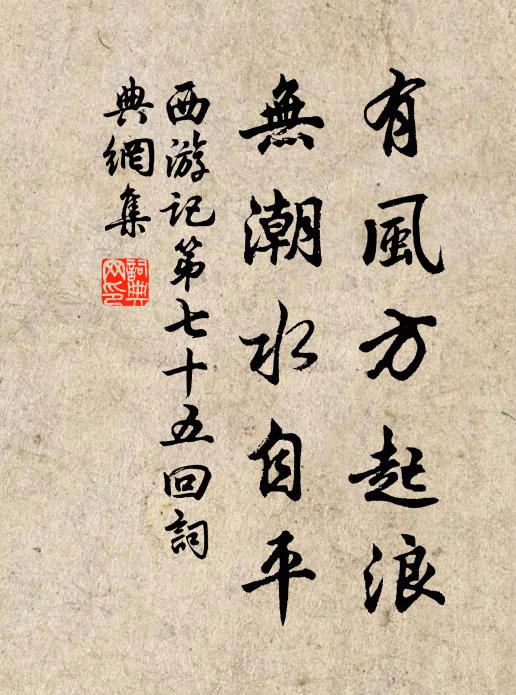 有風方起浪
無潮水自平
西游记第七十五回詞
典網集
詞典
网印